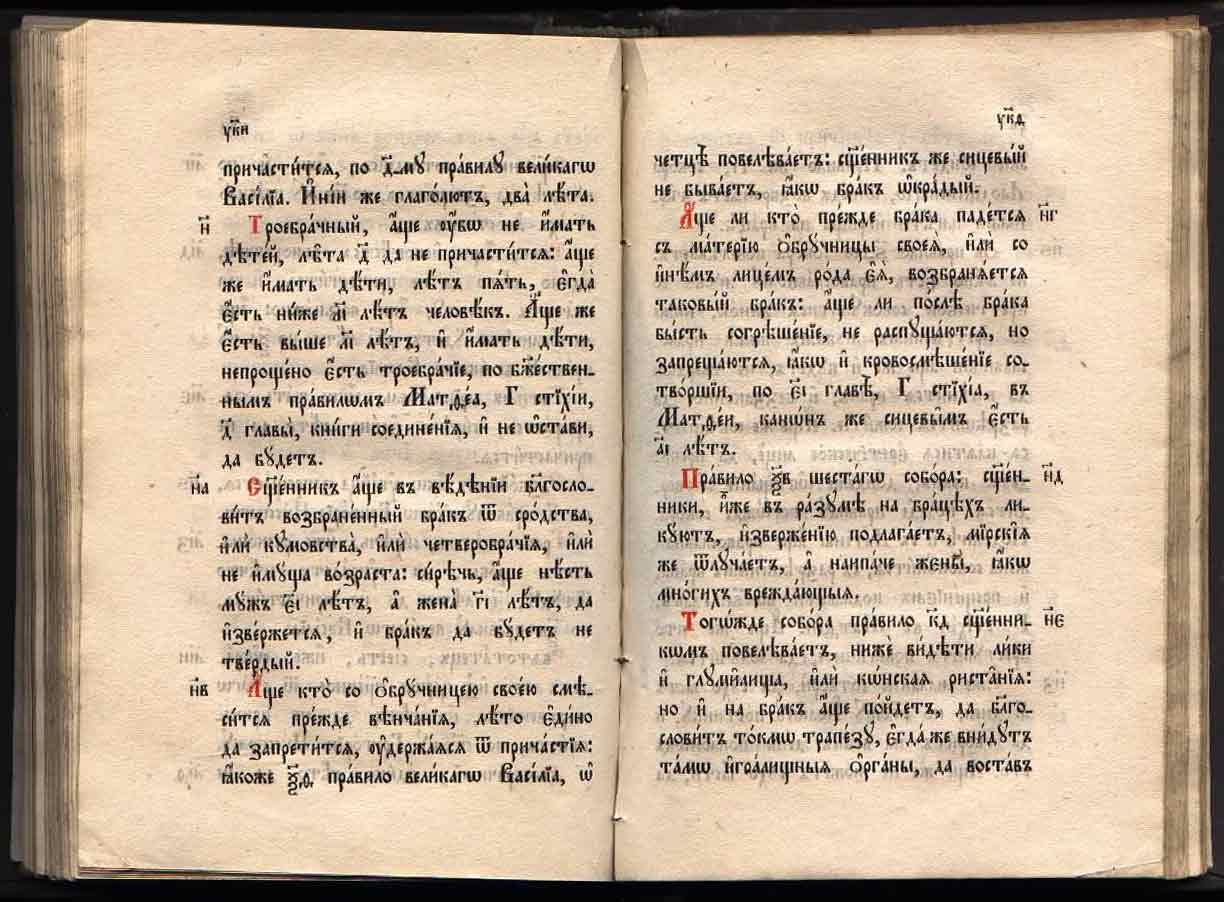 у҃ки
причасти́тсѧ, по д҃_мꙋ пра́вилꙋ вели́кагѡ
Васі́лїа. И҆ні́и же глаго́лютъ, два̀ лѣ̑та.
н҃
Троебра́чный, а҆́ще ᲂу҆́бѡ не и҆́мать
дѣте́й, лѣ̑та д҃ да не причасти́тсѧ: а҆́ще
же и҆́мать дѣ́ти, лѣ́тъ пѧ́ть, є҆гда̀
є҆́сть ни́же м҃ лѣ́тъ человѣ́къ. А҆́ще же
є҆́сть вы́ше м҃ лѣ́тъ, и҆ и҆́мать дѣ́ти,
непроще́но є҆́сть троебра́чїе, по бж҃е́ствен_
нымъ пра́вилѡмъ Матѳе́а, Г стїхі́и,
д҃ главы̀, кни́ги соедине́нїѧ, и҆ не ѡ҆ста́ви,
да бꙋ́детъ.
н҃а
Сщ҃е́нникъ а҆́ще въ вѣ́дѣнїи бл҃госло_
ви́тъ возбране́нный бра́къ ѿ сро́дства,
и҆лѝ кꙋмовства̀, и҆лѝ четверобра́чїѧ, и҆лѝ
не и҆мꙋ́ща во́зраста: си́рѣчь, а҆́ще нѣ́сть
мꙋ́жъ є҃і лѣ́тъ, а҆ жена̀ г҃і лѣ́тъ, да
и҆зве́ржетсѧ, и҆ бра́къ да бꙋ́детъ не
тве́рдый.
н҃в
А҆́ще кто̀ со ѻ҆брꙋ́чницею свое́ю смѣ_
си́тсѧ пре́жде вѣнча́нїѧ, лѣ́то є҆ди́но
да запрети́тсѧ, ᲂу҆держа́ѧсѧ ѿ прича́стїѧ:
ꙗ҆́коже ѯ҃ѳ, пра́вило вели́кагѡ Васі́лїа, ѡ҆
у҃кѳ
четцѣ̀ повелѣва́етъ: сщ҃е́нникъ же сицевы́й
не быва́етъ, ꙗ҆́кѡ бра́къ ѡ҆кра́дый.
н҃г
А҆́ще ли кто̀ пре́жде бра́ка паде́тсѧ
съ ма́терїю ѻ҆брꙋ́чницы своеѧ̀, и҆лѝ со
и҆нѣ́мъ лице́мъ ро́да є҆ѧ̀, возбранѧ́етсѧ
таковы́й бра́къ: а҆́ще ли по́слѣ бра́ка
бы́сть согрѣше́нїе, не распꙋща́ютсѧ, но
запреща́ютсѧ, ꙗ҆́кѡ и҆ кровосмѣше́нїе со_
тво́ршїи, по є҃і главѣ̀, Г стїхі́а, въ
Матѳе́и, канѡ́нъ же сицевы̑мъ є҆́сть
а҃і лѣ́тъ.
н҃д
Пра́вило ѯ҃в шеста́гѡ собо́ра: сщ҃е́н_
ники, и҆́же въ ра́зꙋмѣ на бра́цѣхъ ли_
кꙋ́ютъ, и҆зверже́нїю подлага́етъ, мі́рскїѧ
же ѿлꙋча́етъ, а҆ наипа́че жєны̀, ꙗ҆́кѡ
мно́гихъ вреждаю́щыѧ.
н҃є
Тогѡ́жде собо́ра пра́вило к҃д сщ҃е́нни_
кѡмъ повелѣва́етъ, нижѐ ви́дѣти ли́ки
и҆ глꙋми̑лища, и҆лѝ кѡ́нскаѧ риста̑нїѧ:
но и҆ на бра́къ а҆́ще по́йдетъ, да бл҃го_
слови́тъ то́кмѡ трапе́зꙋ, є҆гда́ же вни́дꙋтъ
та́мѡ и҆гра́лищныѧ ѻ҆рга́ны, да воста́въ